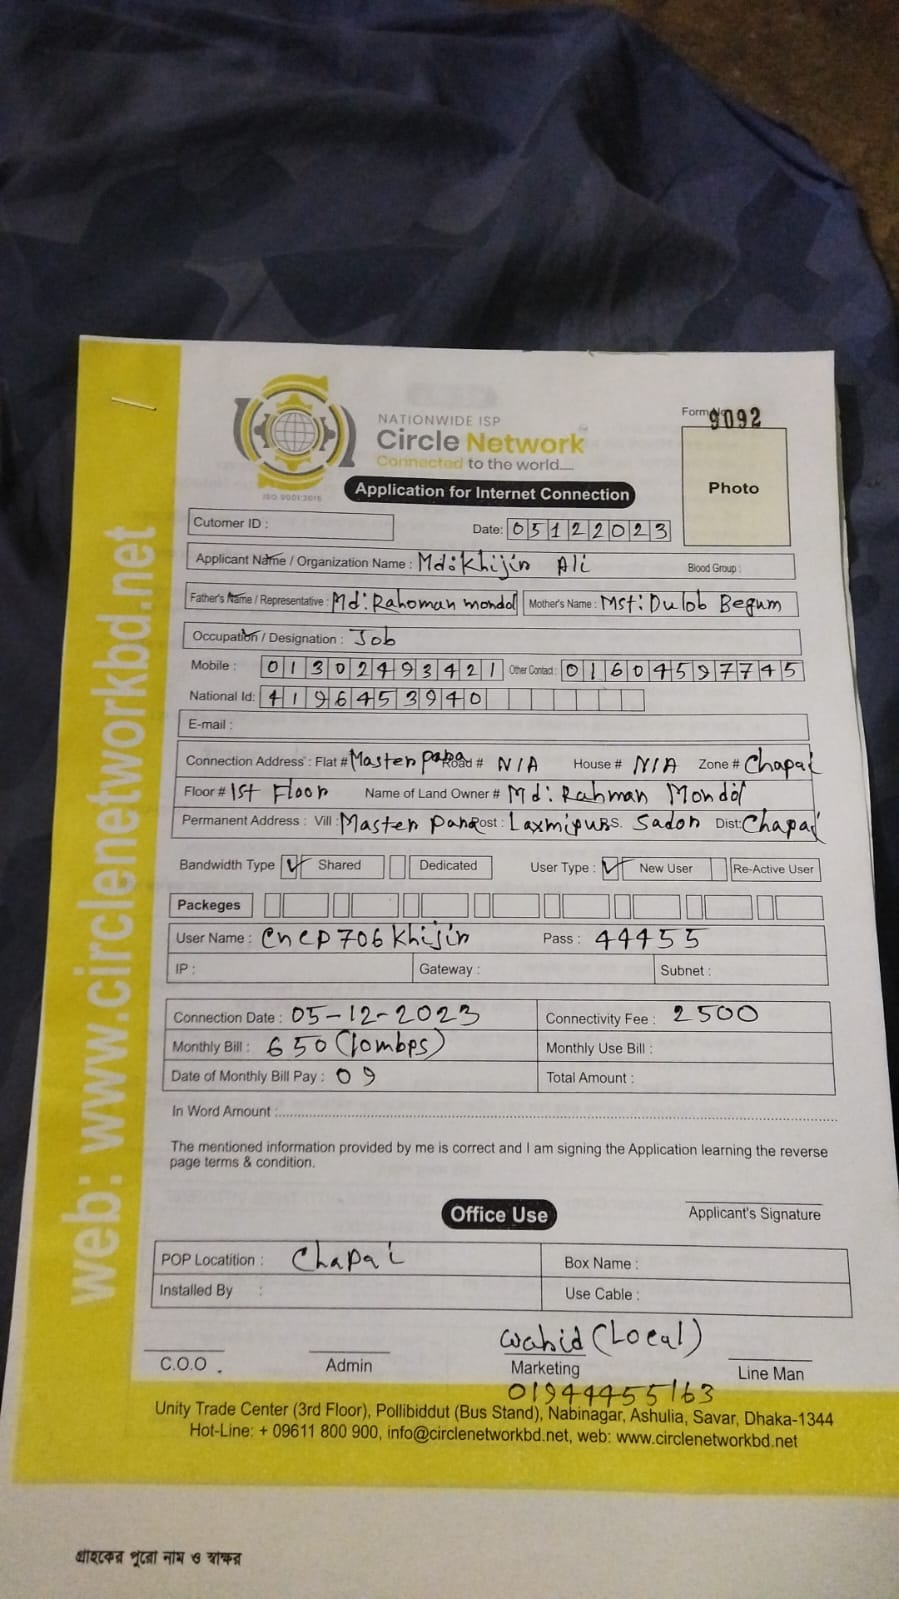 web: www.circlenetworkbd.net
NATIONWIDE ISP
Circle Network
Connected to the world....
ISO 9001:2015
Form 9092
Application for Internet Connection
Photo
Cutomer ID :
Date: 05122023
Applicant Name / Organization Name : Md: Khijin Ali Blood Group :
Father's Name / Representative : Md: Rahoman mondol Mother's Name : Mst: Dulob Begum
Occupation / Designation : Job
Mobile : 01302493421 Other Contact : 01604597745
National Id: 4196453940
E-mail :
Connection Address : Flat # Master para Road # N/A House # N/A Zone # Chapai
Floor # 1st Floor Name of Land Owner # Md: Rahman Mondol
Permanent Address : Vill : Master para Post : Laxmipur P.S. Sador Dist: Chapai
Bandwidth Type Shared Dedicated User Type : New User Re-Active User
Packeges
User Name : cncp706khijin Pass : 44455
IP : Gateway : Subnet :
Connection Date : 05-12-2023 Connectivity Fee : 2500
Monthly Bill : 650 (10mbps) Monthly Use Bill :
Date of Monthly Bill Pay : 09 Total Amount :
In Word Amount :
The mentioned information provided by me is correct and I am signing the Application learning the reverse
page terms & condition.
Applicant's Signature
Office Use
POP Locatition : Chapai Box Name :
Installed By : Use Cable :
wahid (Local)
C.O.O . Admin Marketing Line Man
01944455163
Unity Trade Center (3rd Floor), Pollibiddut (Bus Stand), Nabinagar, Ashulia, Savar, Dhaka-1344
Hot-Line: + 09611 800 900, info@circlenetworkbd.net, web: www.circlenetworkbd.net
গ্রাহকের পুরো নাম ও স্বাক্ষর